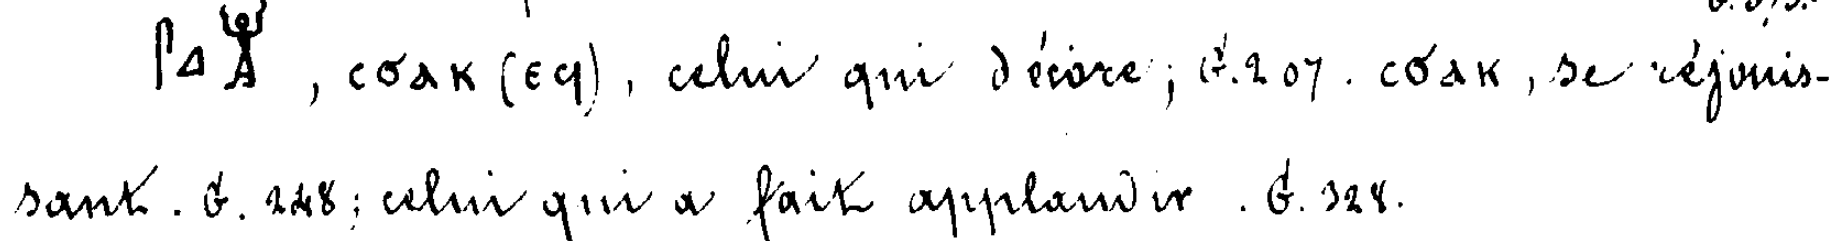 𓋴𓈎𓀠, ⲥϭⲁⲕ (ⲉϥ), celui qui décore; G. 207. ⲥϭⲁⲕ, se réjouis-
sant. G. 248; celui qui a fait applaudir. G. 328.